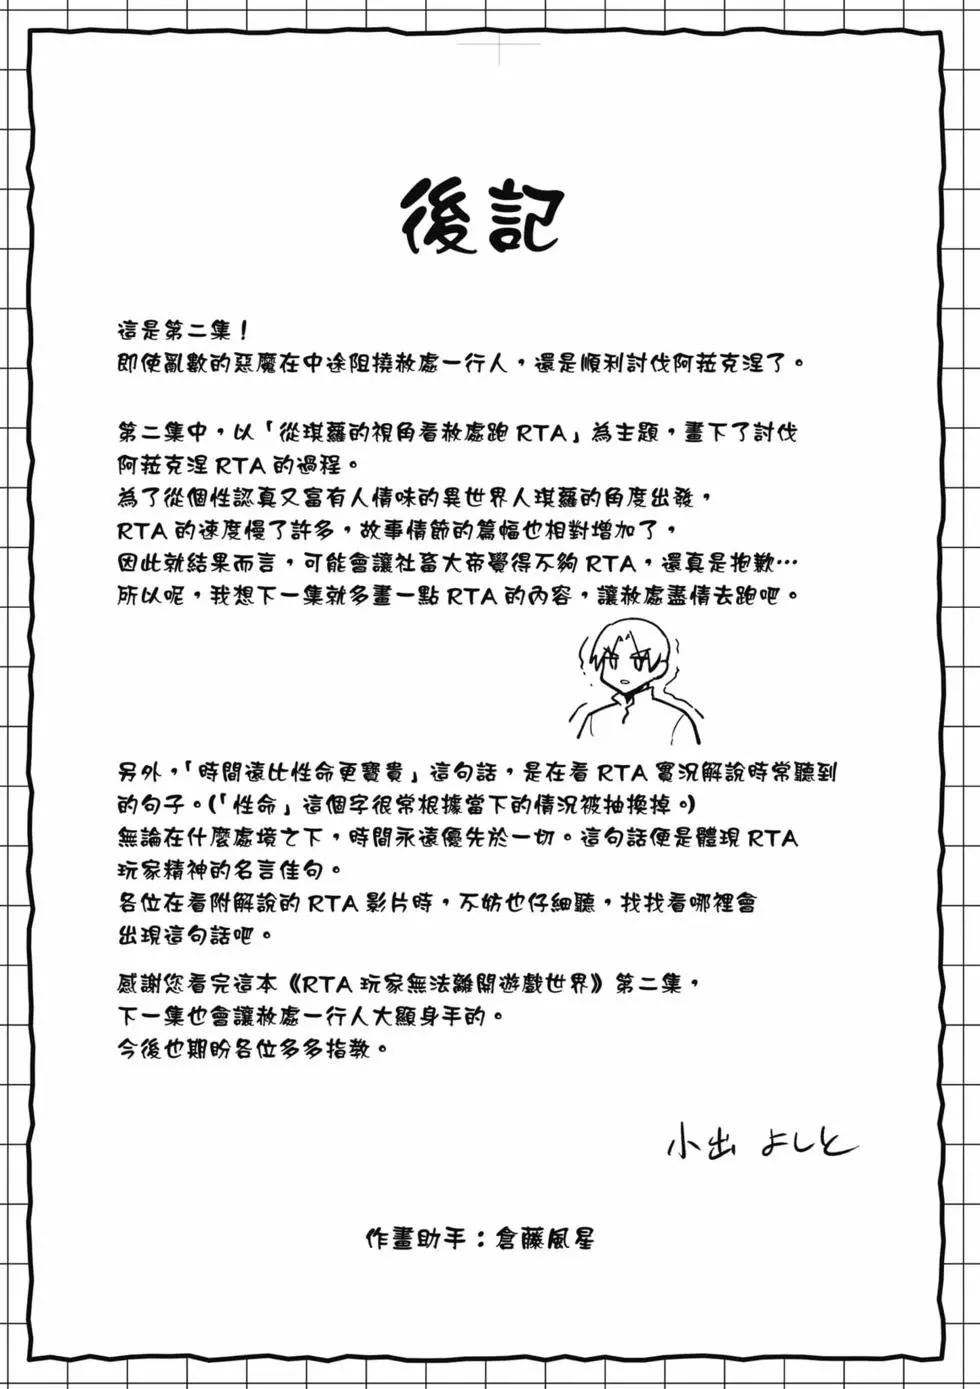 後記
這是第二集！
即使亂數的惡魔在中途阻撓赦處一行人，還是順利討伐阿菈克涅了。
第二集中，以「從琪蘿的視角看赦處跑RTA」為主題，畫下了討伐
阿菈克涅RTA的過程。
為了從個性認真又富有人情味的異世界人琪蘿的角度出發，
RTA的速度慢了許多，故事情節的篇幅也相對增加了，
因此就結果而言，可能會讓社畜大帝覺得不夠RTA，還真是抱歉⋯
所以呢，我想下一集就多畫一點RTA的內容，讓赦處盡情去跑吧。
另外，「時間遠比性命更寶貴」這句話，是在看RTA實況解說時常聽到
的句子。(「性命」這個字很常根據當下的情況被抽換掉。)
無論在什麼處境之下，時間永遠優先於一切。這句話便是體現RTA
玩家精神的名言佳句。
各位在看附解說的RTA影片時，不妨也仔細聽，找找看哪裡會
出現這句話吧。
感謝您看完這本《RTA玩家無法離開遊戲世界》第二集，
下一集也會讓赦處一行人大顯身手的。
今後也期盼各位多多指教。
小出 よしと
作畫助手：倉藤風星